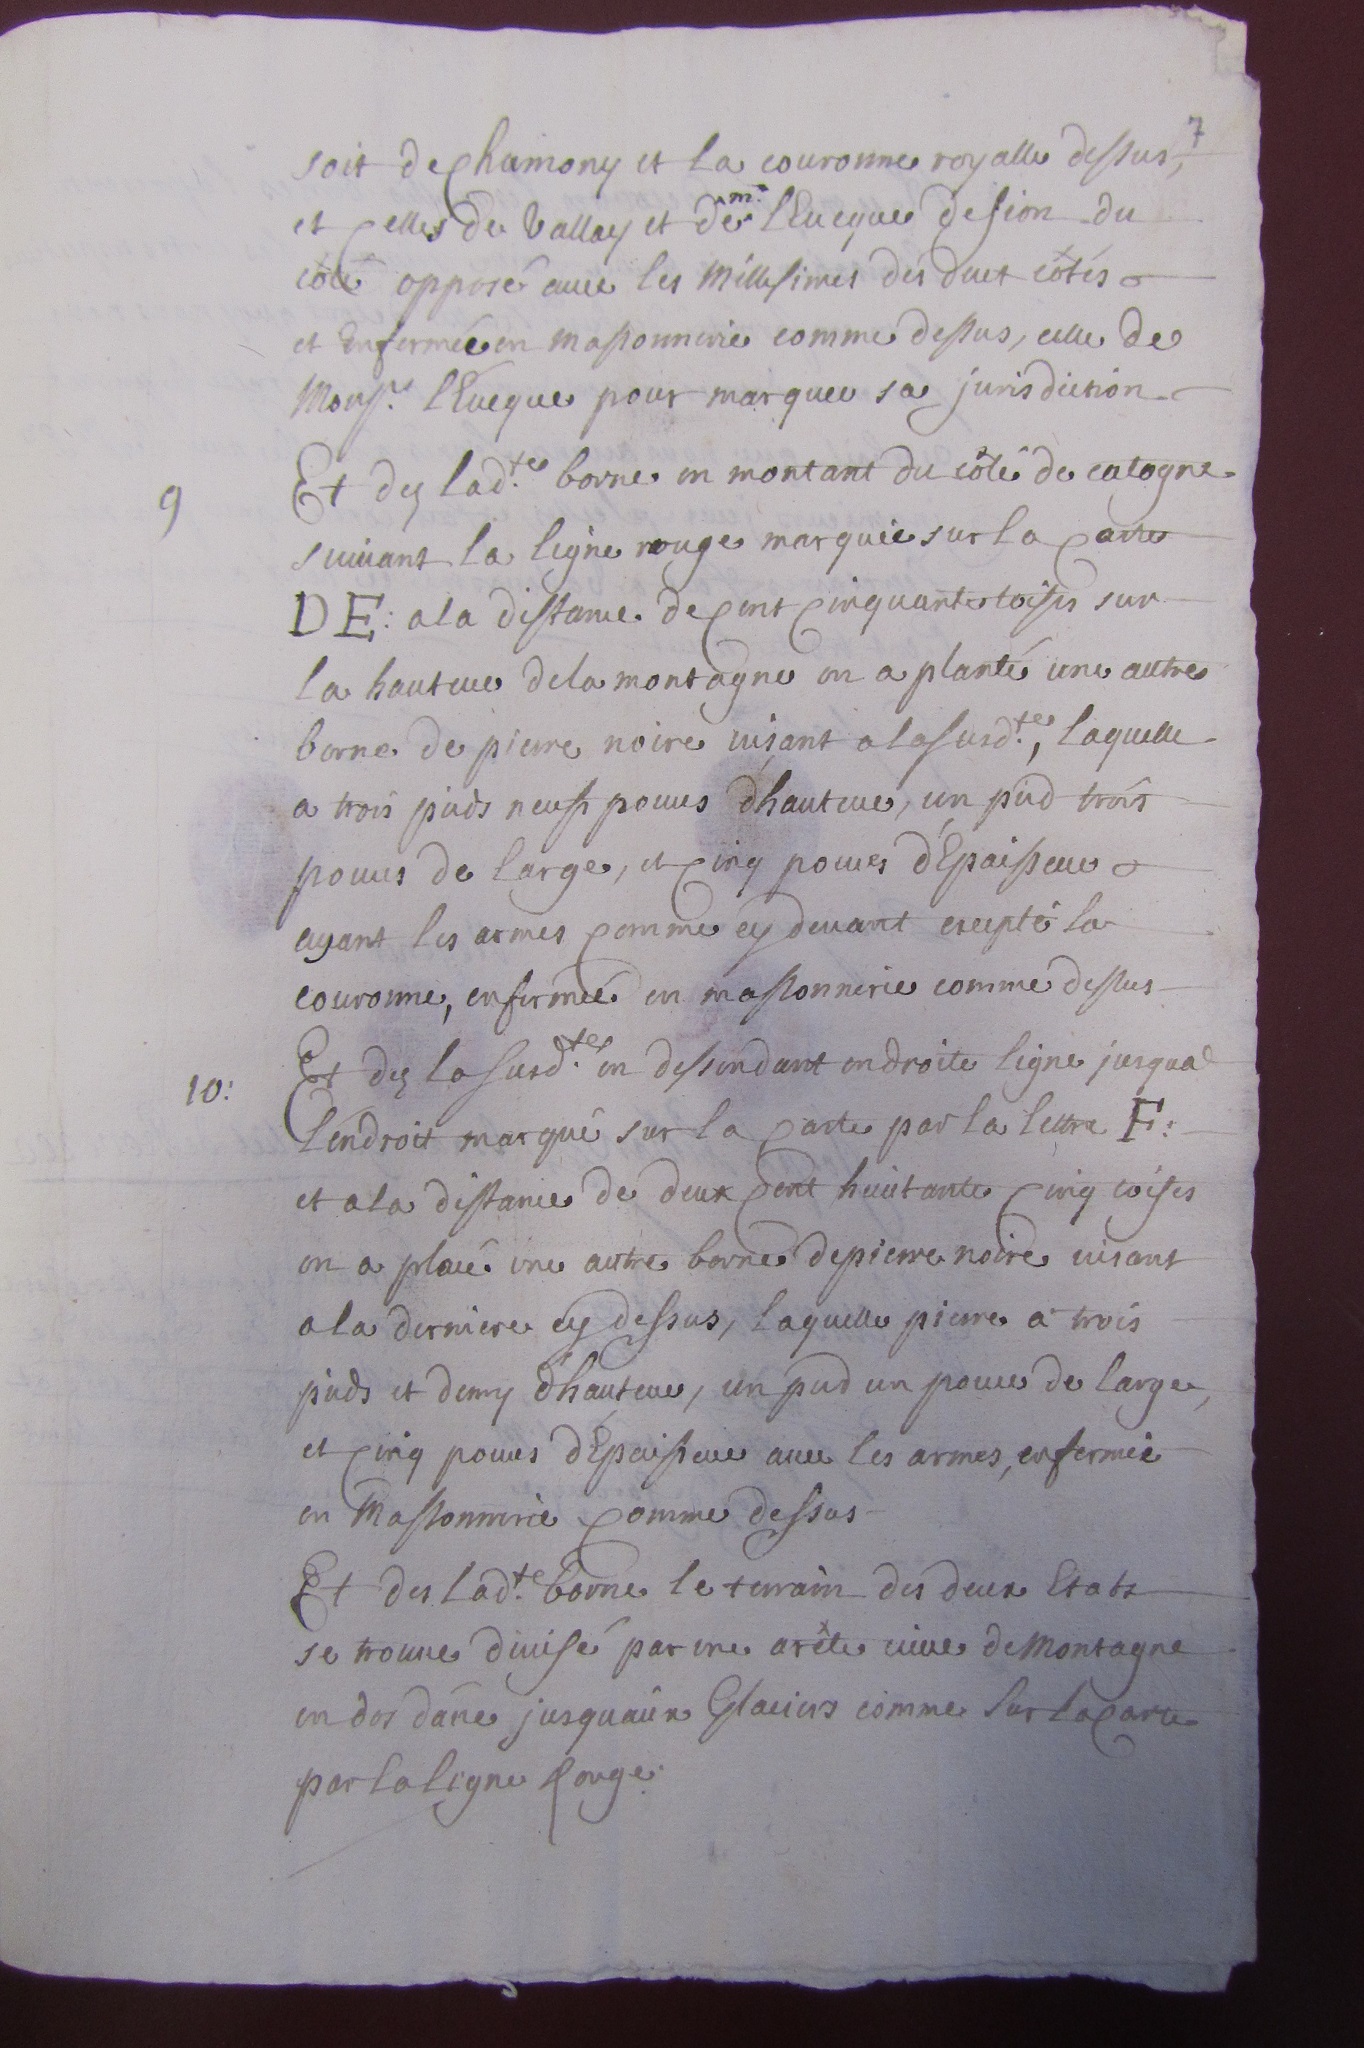 7
soit de Chamony et la couronne royalle dessus,
et Celles de Vallay et de mr. l'Eueque de sion du
côté opposé auec les Millesimes des deux côtés
et Enfermée en massonnerie comme dessus, celle de
Monsr. l'Eueque pour marquer sa jurisdiction
9 Et dez lad.te borne en montant du côté de catogne
suiuant la ligne rouge marquée sur la Carte
DE: a la distance de Cent Cinquante toises sur
la hauteur de la montagne on a planté une autre
borne de pierre noire uisant a la susd.te, laquelle
a trois pieds neuf pouces d'hauteur, un pied trois
pouces de large, et Cinq pouces d'Epaisseur
ayant les armes Comme cy deuant excepté la
couronne, enfermée en massonnerie comme dessus
10: Et dez la susd.te en dessendant en droite ligne jusqua
l'endroit marqué sur la Carte par la lettre F:
et a la distance de deux Cent huitante Cinq toises
on a placé une autre borne de pierre noire uisant
a la derniere cy dessus, laquelle pierre a trois
pieds et demy d'hauteur, un pied un pouce de large,
et Cinq pouces d'Epaisseur auec les armes, enfermée
en Massonnerie Comme dessus
Et des lad.te borne le terrain des deux Etats
se trouue diuisé par une arête uiue de Montagne
en dos d'ane jusquaux Glaciers comme sur la Carte
par la ligne Rouge.